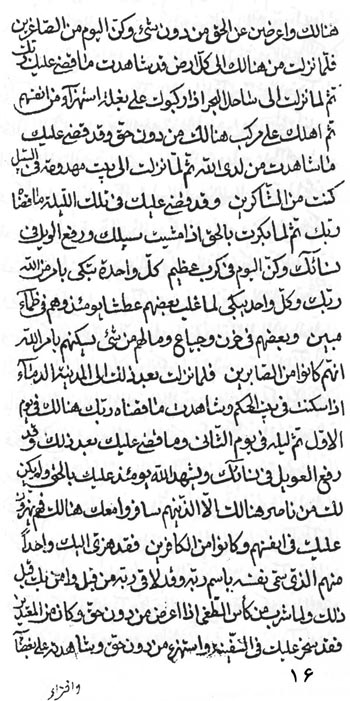 هنالك واعرضن عن الحق من دون شئ وكن اليوم من الصاغرين
فلما نزلت من هنالك الى كل ارض قد شاهدت ما قضى عليك ربك
ثم لما نزلت الى ساحل البحر اذا ركبوك على بغلة استهزآء من انفسهم
ثم اهلك على مركب هنالك من دون حق وقد قضى عليك
ما شاهدت من لدى الله ثم لما نزلت الى بيت مهدومة فى السبيل
كنت من الشاكرين وقد قضى عليك فى تلك الليلة ما قضى
ربك ثم لما بكرت بالحق اذا مشيت سبيلك ورفع الويل فى
نسائك وكن اليوم فى كرب عظيم كل واحدة تبكى باذن الله
ربك وكل واحد يبكى لما غلب بعضهم عطشا يومئذ وهم فى ظماء
مبين وبعضهم فى حزن وجياع وما لهم من شئ يسكنهم بامر الله
انهم كانوا من الصابرين فلما نزلت بعد ذلك الى المدينة الدمآء
اذا سكنت فى بيت الحكم وشاهدت ما قضاه ربك هنالك فى يوم
الاول ثم ليله فى يوم الثانى وما قضى عليك بعد ذلك وقد
رفع العويل فى نسائك وشهد الله يومئذ عليك بالحق ولم يكن
لك من ناصر هنالك الا الذينهم سافروا معك هنالك فهم
عليك فى انفسهم وكانوا من الكافرين فقد هزئ اليك واحدا
منهم الذى سمى نفسه باسم ربه وقد لاقى ربه من قبل وامن بك قبل
ذلك ولما شرب من كأس الطغى اذا اعرض من دون حق وكان من المفسدين
فقد سخر عليك فى السفينة واستهزئ من دون حق وشاهدته على بغضآء
١٦
وافتراء